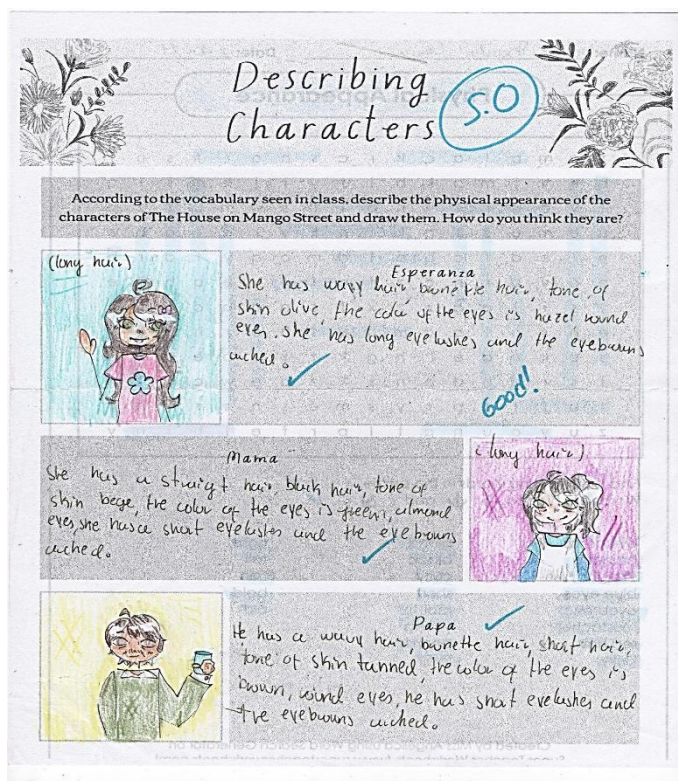 Describing
Characters
5.0
According to the vocabulary seen in class, describe the physical appearance of the
characters of The House on Mango Street and draw them. How do you think they are?
(long hair)
Esperanza
She has wavy hair, brunette hair, tone of
skin olive, the color of the eyes is hazel round
eyes, she has long eyelashes and the eyebrowns
arched.
Good!
Mama
She has a straigt hair, black hair, tone of
skin bege, the color of the eyes is green, almond
eyes, she has a short eyelashes and the eyebrowns
arched.
(long hair)
Papa
He has a wavy hair, brunette hair, short hair,
tone of skin tanned, the color of the eyes is
brown, round eyes, he has short eyelashes and
the eyebrowns arched.